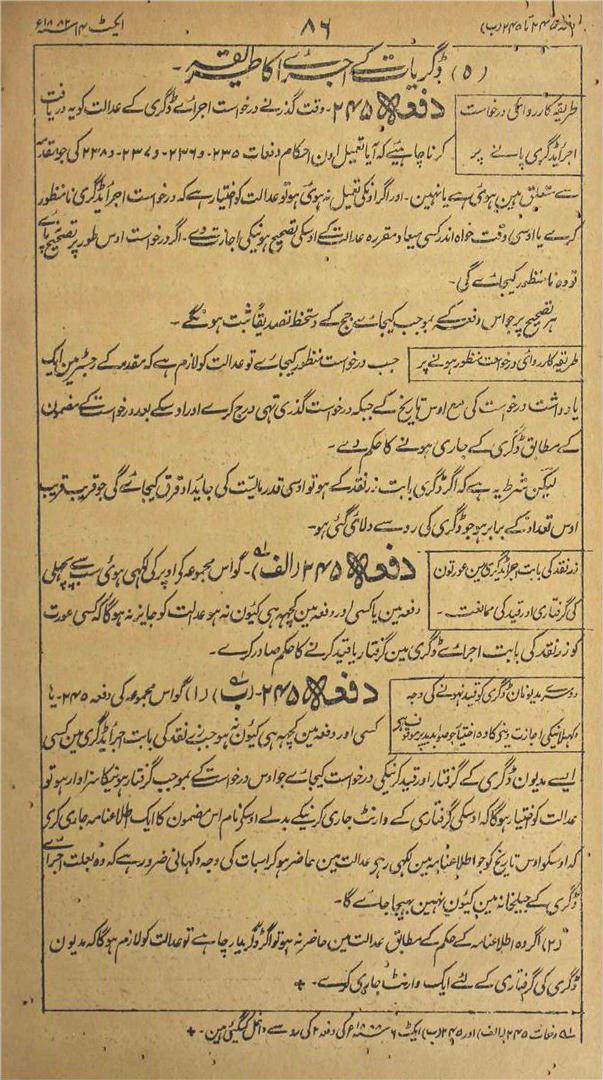 دفعہ ۲۴۵ تا ۲۴۵ (ب)
۸۶
ایکٹ ۱۴ سنہ ۱۸۸۲ع
(۵) ڈگریات کے اجرا کا طریقہ۔
طریقہ کارروائی درخواست
اجرا ڈگری پانے پر
دفعہ ۲۴۵۔ وقت گذرنے درخواست اجراے ڈگری کے عدالت کو یہ دریافت
کرنا چاہیئے کہ آیا تعمیل اون احکام دفعات ۲۳۵۔ و ۲۳۶۔ و ۲۳۷۔ و ۲۳۸ کی جو مقدمہ
سے متعلق ہین ہوئی ہے یا نہین۔ اور اگر اونکی تعمیل نہ ہوئی ہو تو عدالت کو اختیار ہے کہ درخواست اجرا ڈگری نامنظور
کرے یا اوسی وقت خواہ اندر کسی میعاد مقررہ عدالت کے اوسکی تصحیح ہونیکی اجازت دے۔ اگر درخواست اوس طور پر تصحیح نپائے
تو وہ نامنظور کیجائے گی۔
ہر تصحیح پر جو اس دفعہ کے بموجب کیجائے جج کے دستخط تصدیقاً ثبت ہونگے۔
طریقہ کارروائی درخواست منظور ہونے پر
جب درخواست منظور کیجائے تو عدالت کو لازم ہے کہ مقدمہ کے رجسٹر مین ایک
یادداشت درخواست کی مع اوس تاریخ کے جبکہ درخواست گذری تہی درج کرے اور اوسکے بعد درخواست کے مضمون
کے مطابق ڈگری کے جاری ہونے کا حکم دے۔
لیکن شرط یہ ہے کہ اگر ڈگری بابت زر نقد کے ہو تو اوسی قدر مالیت کی جایداد قرق کیجائے گی جو قریب قریب
اوس تعداد کے برابر ہو جو ڈگری کی رو سے دلائی گئی ہو۔
زر نقد کی بابت اجرا ڈگری مین عورتون
کی گرفتاری اور قید کی ممانعت۔
دفعہ ۲۴۵ (الف)۔ گو اس مجموعہ کی اوپر کی لکہی ہوئی سب سے پچہلی
دفعہ مین یا کسی اور دفعہ مین کچہہ ہی کیون نہ ہو عدالت کو جایز نہ ہوگا کہ کسی عورت
کو زر نقد کی بابت اجراے ڈگری مین گرفتار یا قید کرنے کا حکم صادر کرے۔
دوسرے مدیونان ڈگری کو قید نہونے کی وجہ
دکہلانیکی اجازت دینے کا وہ اختیار جو صوابدید پر موقوف ہے
دفعہ ۲۴۵۔ (ب) (۱) گو اس مجموعہ کی دفعہ ۲۴۵۔ یا
کسی اور دفعہ مین کچہہ ہی کیون نہ ہو جب زر نقد کی بابت اجرا ڈگری مین کسی
ایسے مدیون ڈگری کے گرفتار اور قید کرنیکی درخواست کیجائے جو اوس درخواست کے بموجب گرفتار ہونیکا سزاوار ہو تو
عدالت کو اختیار ہوگا کہ اوسکی گرفتاری کے وارنٹ جاری کرنیکے بدلے اوسکے نام اس مضمون کا ایک اطلاعنامہ جاری کرے
کہ اوسکو اوس تاریخ کو جو اطلاعنامہ مین لکہی رہے عدالت مین حاضر ہو کر اسبات کی وجہ دکہانی ضرور ہے کہ وہ بعلت اجراے
ڈگری کے جیلخانہ مین کیون نہین بہیجا جائے گا۔
(۲) اگر وہ اطلاعنامہ کے حکم کے مطابق عدالت مین حاضر نہ ہو تو اگر ڈگریدار چاہے تو عدالت کو لازم ہوگا کہ مدیون
ڈگری کی گرفتاری کے لئے ایک وارنٹ جاری کرے۔
دفعات ۲۴۵ (الف) اور ۲۴۵ (ب) ایکٹ ۶ سنہ ۱۸۸۸ع کی دفعہ ۲ کی رو سے داخل کیگئین ہین۔